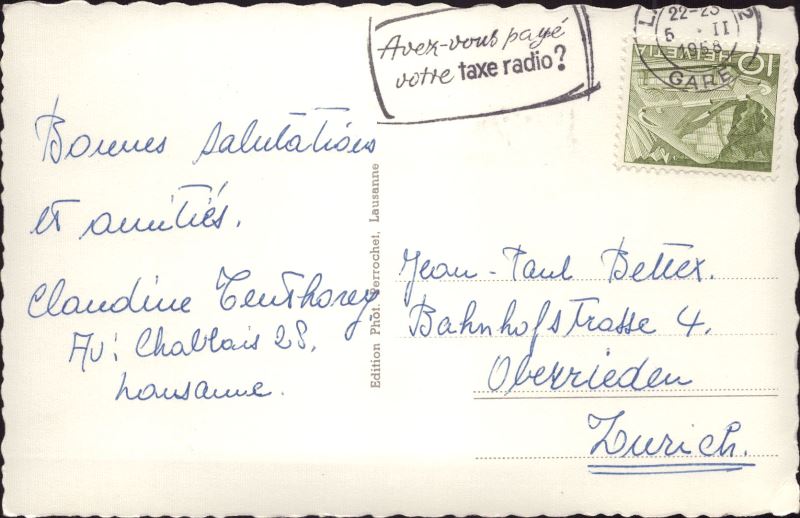 Avez-vous payé
votre taxe radio?
22-23
5 . II
1958
GARE
HELVETIA
10
Bonnes salutations
et amitiés.
Claudine Tenthorey
Av: Chablais 28.
Lausanne.
Edition Phot. Perrochet, Lausanne
Jean-Paul Bettex.
Bahnhofstrasse 4.
Oberrieden
Zurich.